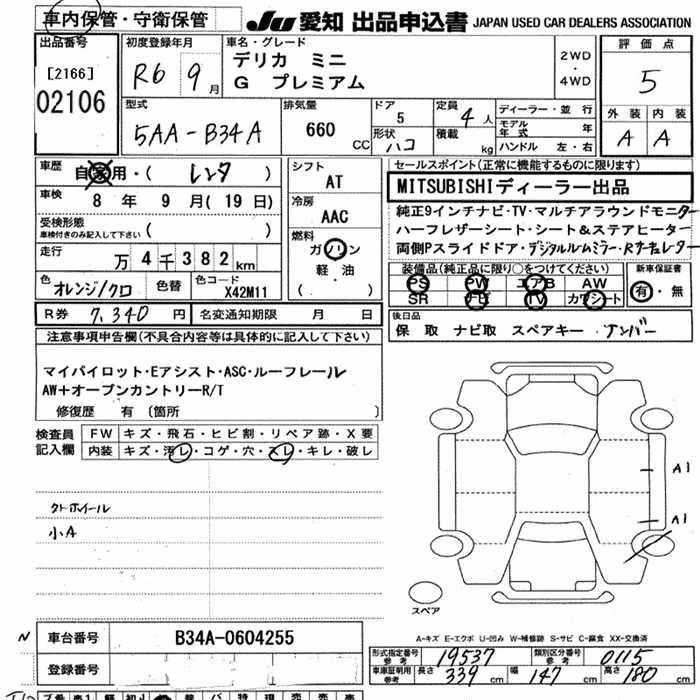 車内保管・守衛保管
JU 愛知 出品申込書 JAPAN USED CAR DEALERS ASSOCIATION
出品番号
[2166]
02106
初度登録年月
R6 9月
車名・グレード
デリカ ミニ
G プレミアム
2WD
・
4WD
評価点
5
型式
5AA-B34A
排気量
660
CC
ドア
5
形状
ハコ
定員
4人
積載
kg
ディーラー・並行
モデル年式 年
ハンドル 左・右
外装 内装
A A
車歴
自家用・( レンタ )
車検
8 年 9 月 ( 19 日)
受検形態
車検付きのみ記入して下さい ( )
走行
万 4 千 3 8 2 km
色
オレンジ/クロ
色替
色コード
X42M11
シフト
AT
冷房
AAC
燃料
ガソリン
軽・油
( )
セールスポイント(正常に機能するものに限ります)
MITSUBISHIディーラー出品
純正9インチナビ・TV・マルチアラウンドモニター
ハーフレザーシート・シート&ステアヒーター
両側Pスライドドア・デジタルルームミラー・Rサーキュレーター
装備品(純正品に限り○をつけてください)
PS PW エアB AW
SR ナビ TV カワシート
新車保証書
有・無
R券 7,340 円
名変通知期限 月 日
後日品
保 取 ナビ取 スペアキー ナンバー
注意事項申告欄(不具合内容等は具体的に記入して下さい)
マイパイロット・Eアシスト・ASC・ルーフレール
AW+オープンカントリーR/T
修復歴 有 〔箇所 〕
検査員
記入欄
FW キズ・飛石・ヒビ割・リペア跡・X要
内装 キズ・汚レ・コゲ・穴・スレ・キレ・破レ
クトホイール
小A
A1
A1
スペア
A-キズ E-エクボ U-凹み W-補修跡 S-サビ C-腐食 XX-交換済
N
車台番号
B34A-0604255
登録番号
形式指定番号
参考
19537
類別区分番号
参考
0115
車庫証明用
参考
長さ 339 cm 幅 147 cm 高さ 180 cm